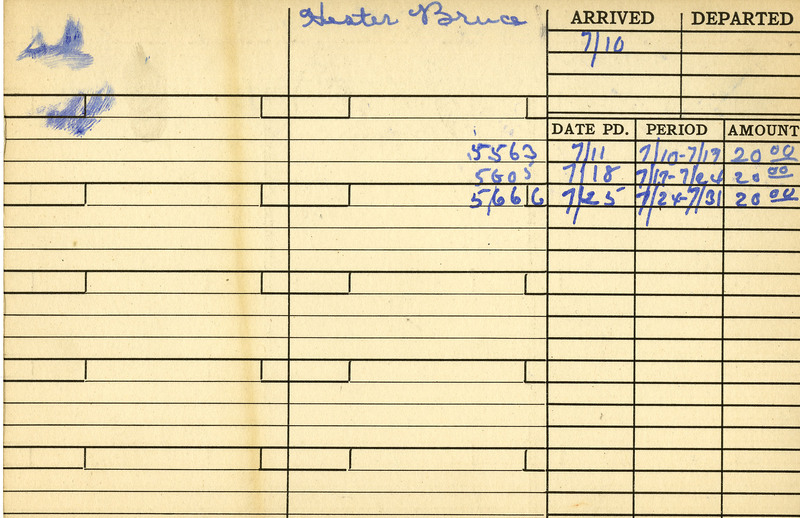 Hester Bruce
ARRIVED DEPARTED
7/10
DATE PD. PERIOD AMOUNT
5563 7/11 7/10-7/17 20 00
5605 7/18 7/17-7/24 20 00
5666 7/25 7/24-7/31 20 00